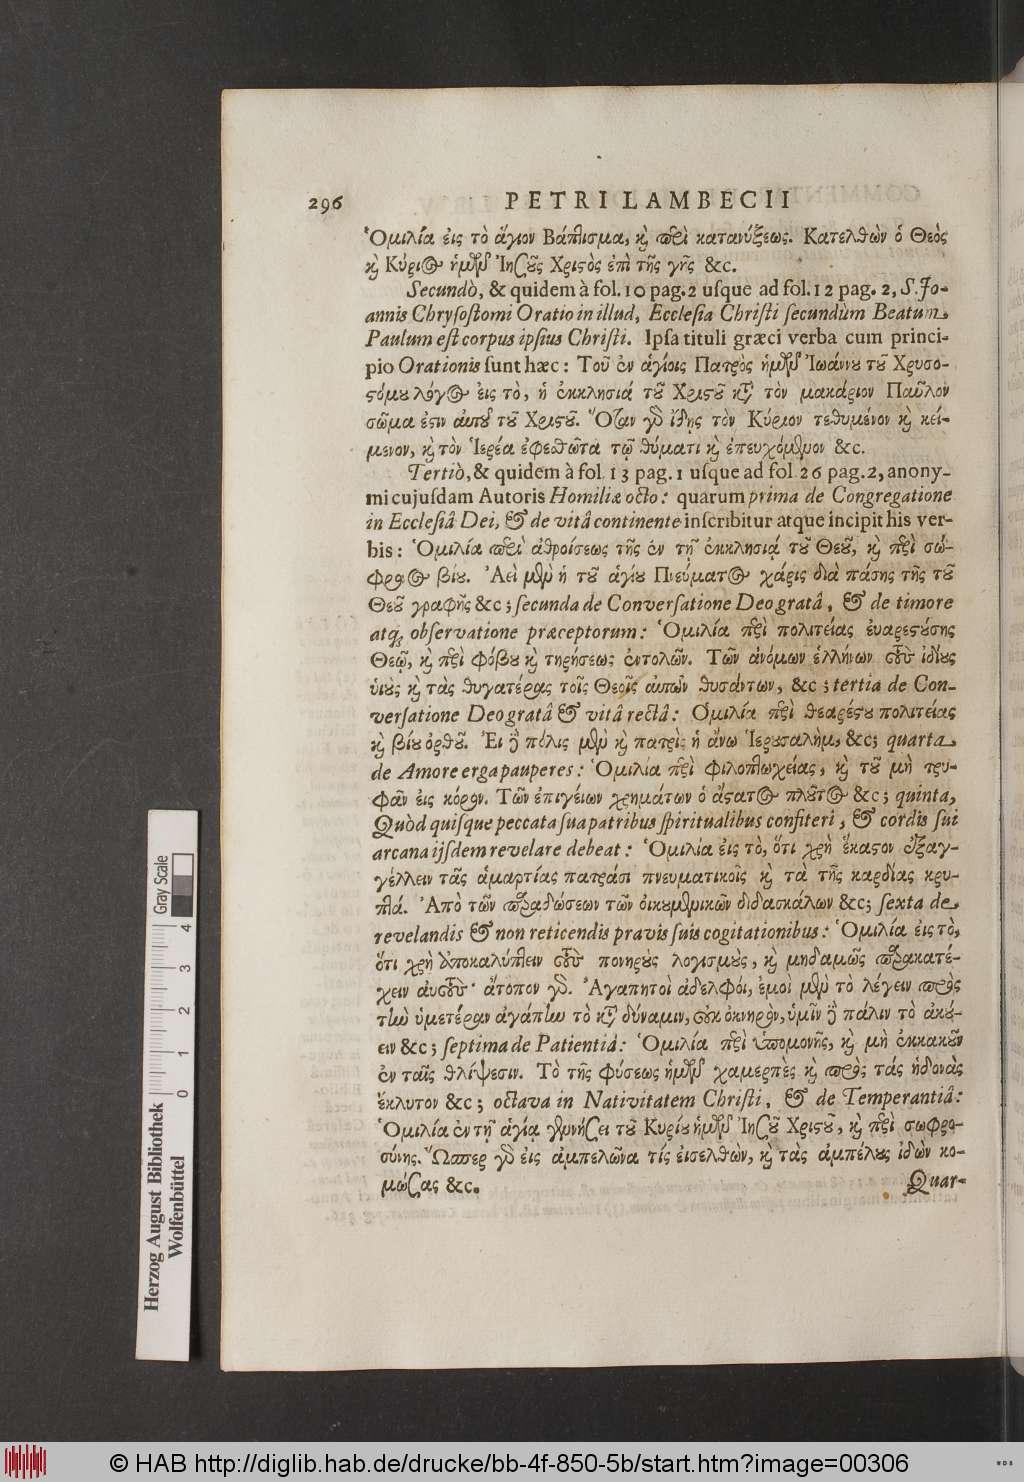 296 PETRI LAMBECII
Ὁμιλία εἰς τὸ ἅγιον Βάπτισμα, καὶ περὶ κατανύξεως. Κατελθὼν ὁ Θεὸς
καὶ Κύριος ἡμῶν Ἰησοῦς Χριστὸς ἐπὶ τῆς γῆς &c.
Secundò, & quidem à fol. 10 pag. 2 uſque ad fol. 12 pag. 2, S. Jo-
annis Chryſoſtomi Oratio in illud, Eccleſia Chriſti ſecundùm Beatum
Paulum eſt corpus ipſius Chriſti. Ipſa tituli græci verba cum princi-
pio Orationis ſunt hæc: Τοῦ ἐν ἁγίοις Πατρὸς ἡμῶν Ἰωάννου τοῦ Χρυσο-
στόμου λόγος εἰς τὸ, ἡ ἐκκλησιά τοῦ Χριστοῦ κατὰ τὸν μακάριον Παῦλον
σῶμα ἐστιν αὐτοῦ τοῦ Χριστοῦ. Ὅταν γὰρ ἴδῃς τὸν Κύριον τεθυμένον καὶ κεί-
μενον, καὶ τὸν Ἱερέα ἐφεστῶτα τῷ θύματι καὶ ἐπευχόμενον &c.
Tertiò, & quidem à fol 13 pag. 1 uſque ad fol 26 pag. 2, anony-
mi cujuſdam Autoris Homiliæ octo: quarum prima de Congregatione
in Eccleſiâ Dei, & de vitâ continente inſcribitur atque incipit his ver-
bis: Ὁμιλία περὶ ἀθροίσεως τῆς ἐν τῇ ἐκκλησιᾴ τοῦ Θεοῦ, καὶ περὶ σώ-
φρονος βίου. Ἀεὶ μὲν ἡ τοῦ ἁγίου Πνεύματος χάρις διὰ πάσης τῆς τοῦ
Θεοῦ γραφῆς &c; ſecunda de Converſatione Deo gratâ, & de timore
atq; obſervatione præceptorum: Ὁμιλία περὶ πολιτείας ἐυαρεστούσης
Θεῷ, καὶ περὶ φόβου καὶ τηρήσεως ἐντολῶν. Τῶν ἀνόμων ἑλλήνων τοὺς ἰδίους
ὑιοὺς καὶ τὰς θυγατέρας τοῖς Θεοῖς αὐτῶν θυσάντων, &c; tertia de Con-
verſatione Deo gratâ & vitâ rectâ: Ὁμιλία περὶ θεαρέστου πολιτείας
καὶ βίου ὀρθοῦ. Ἐι δὲ πόλις μὲν καὶ πατρὶς ἡ ἄνω Ἱερουσαλὴμ, &c; quarta
de Amore erga pauperes: Ὁμιλία περὶ φιλοπτωχείας, καὶ τοῦ μὴ τρυ-
φᾶν εἰς κόρον. Τῶν ἐπιγείων χρημάτων ὁ ἄστατος πλοῦτος &c; quinta,
Quòd quiſque peccata ſua patribus ſpiritualibus confiteri, & cordis ſui
arcana ijſdem revelare debeat: Ὁμιλία εἰς τὸ, ὅτι χρὴ ἕκαστον ἐξαγ-
γέλλειν τὰς ἁμαρτίας πατράσι πνευματικοῖς καὶ τὰ τῆς καρδίας κρυ-
πτά. Ἀπὸ τῶν παραδώσεων τῶν οἰκουμενικῶν διδασκάλων &c; ſexta de
revelandis & non reticendis pravis ſuis cogitationibus: Ὁμιλία εἰς τὸ,
ὅτι χρὴ ἀποκαλύπτειν τοὺς πονηροὺς λογισμοὺς, καὶ μηδαμῶς παρακατέ-
χειν αὐτοὺς· ἄτοπον γάρ. Ἀγαπητοὶ ἀδελφόι, ἐμοὶ μὲν τὸ λέγειν πρὸς
τὴν ὑμετέραν ἀγάπην τὸ κατὰ δύναμιν, οὐκ ὀκνηρὸν, ὑμῖν δὲ πάλιν τὸ ἀκού-
ειν &c; ſeptima de Patientiâ: Ὁμιλία περὶ ὑπομονῆς, καὶ μὴ ἐκκακοῦν
ἐν ταῖς θλίψεσιν. Τὸ τῆς φύσεως ἡμῶν χαμερπὲς καὶ πρὸς τάς ἡδονὰς
ἔκλυτον &c; octava in Nativitatem Chriſti, & de Temperantiâ:
Ὁμιλία ἐν τῇ ἁγίᾳ γεννήσει τοῦ Κυρίου ἡμῶν Ἰησοῦ Χριστοῦ, καὶ περὶ σωφρο-
σύνης. Ὥσπερ γὰρ εἰς ἀμπελῶνα τίς εἰσελθὼν, καὶ τὰς ἀμπέλους ἰδὼν κο-
μώσας &c.
Quar-
Herzog August Bibliothek
Wolfenbüttel
Gray Scale
0 1 2 3 4
© HAB http://diglib.hab.de/drucke/bb-4f-850-5b/start.htm?image=00306